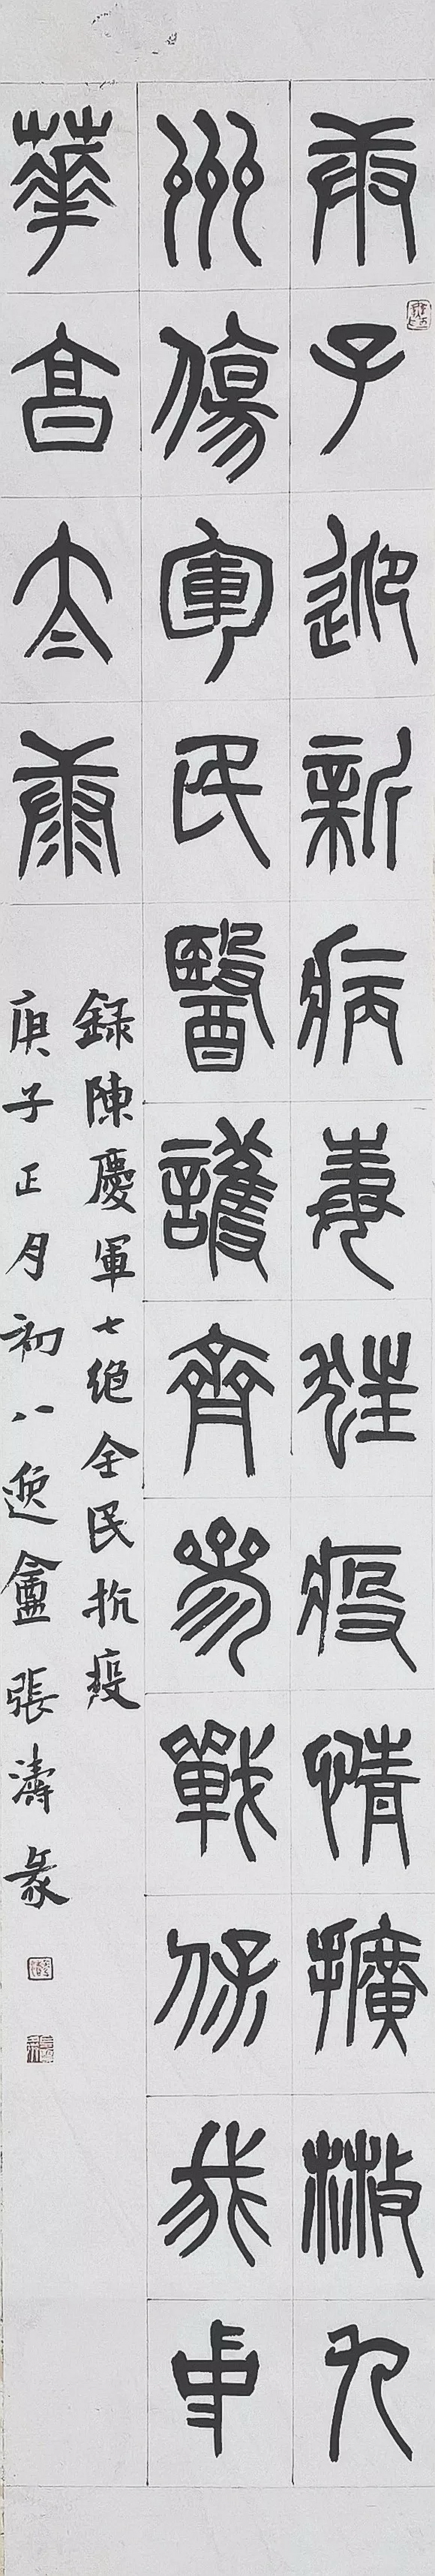 庚子迎新病毒狂疫情擴散九
州傷軍民醫護齊參戰保我中
華享泰康
録陳慶軍七絶全民抗疫
庚子正月初八盦張濤篆